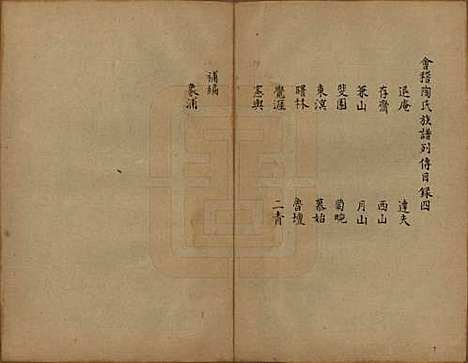 會稽陶氏族譜列傳目錄四
退庵 達夫
存齋 西山
兼山 月山
斐園 菊畹
東溟 慕始
曙林 魯壇
覺涯 二青
憲輿
補編
象浦